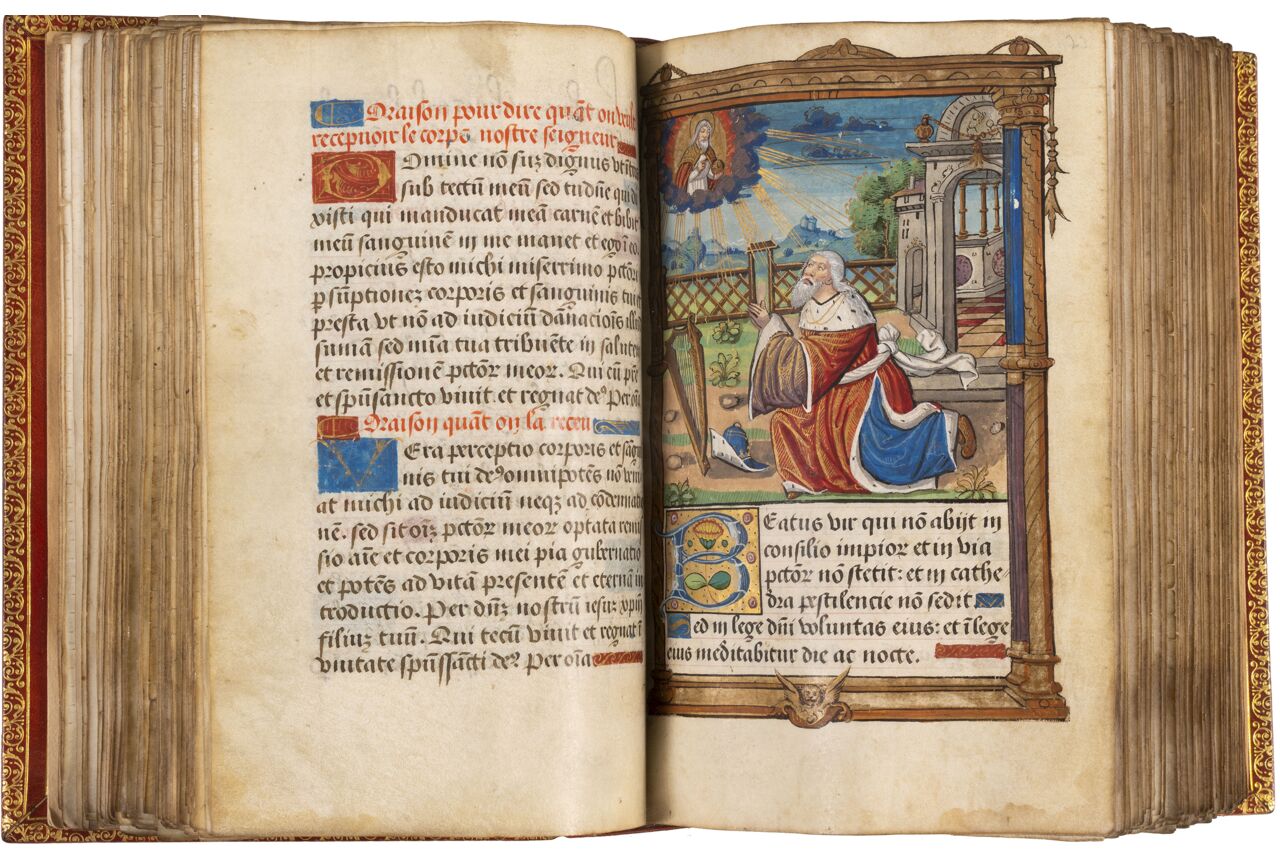 Oraison pour dire quāt on veult
recepuoir le corps nostre seigneur
Domine nō suz dignus vt ītres
sub tectū meū sed tu dñe qui di
xisti qui manducat meā carnē et bibit
meū sanguinē in me manet et ego ī eo
propicius esto michi miserrimo pctōri
p sūptionez corporis et sanguinis tui
presta vt nō ad iudiciū dānaciōis illud
sumā sed mīa tua tribuēte in salutē
et remissionē pctōꝝ meoꝝ. Qui cū pr̄e
et spūsancto viuit et regnat deꝰ Per oīa
Oraison quāt on la receu
Vera perceptio corporis et sāgui
nis tui deꝰ omnipotēs nō veni
at michi ad iudiciū neqꝫ ad cōdemnatio
nē. sed sit oīꝫ pctōꝝ meoꝝ optata remis
sio aīe et corporis mei pia gubernatio
et potēs ad vitā presentē et eternā in
troductio. Per dñꝫ nostrū iesuꝫ xp̄m
filiuꝫ tuū. Qui tecū viuit et regnat ī
vnitate spūssācti deꝰ Per oīa
23
Beatus vir qui nō abijt in
consilio impioꝝ et in via
pctōꝝ nō stetit: et in cathe-
dra pestilencie nō sedit
Sed in lege dñi voluntas eius: et ī lege
eius meditabitur die ac nocte.